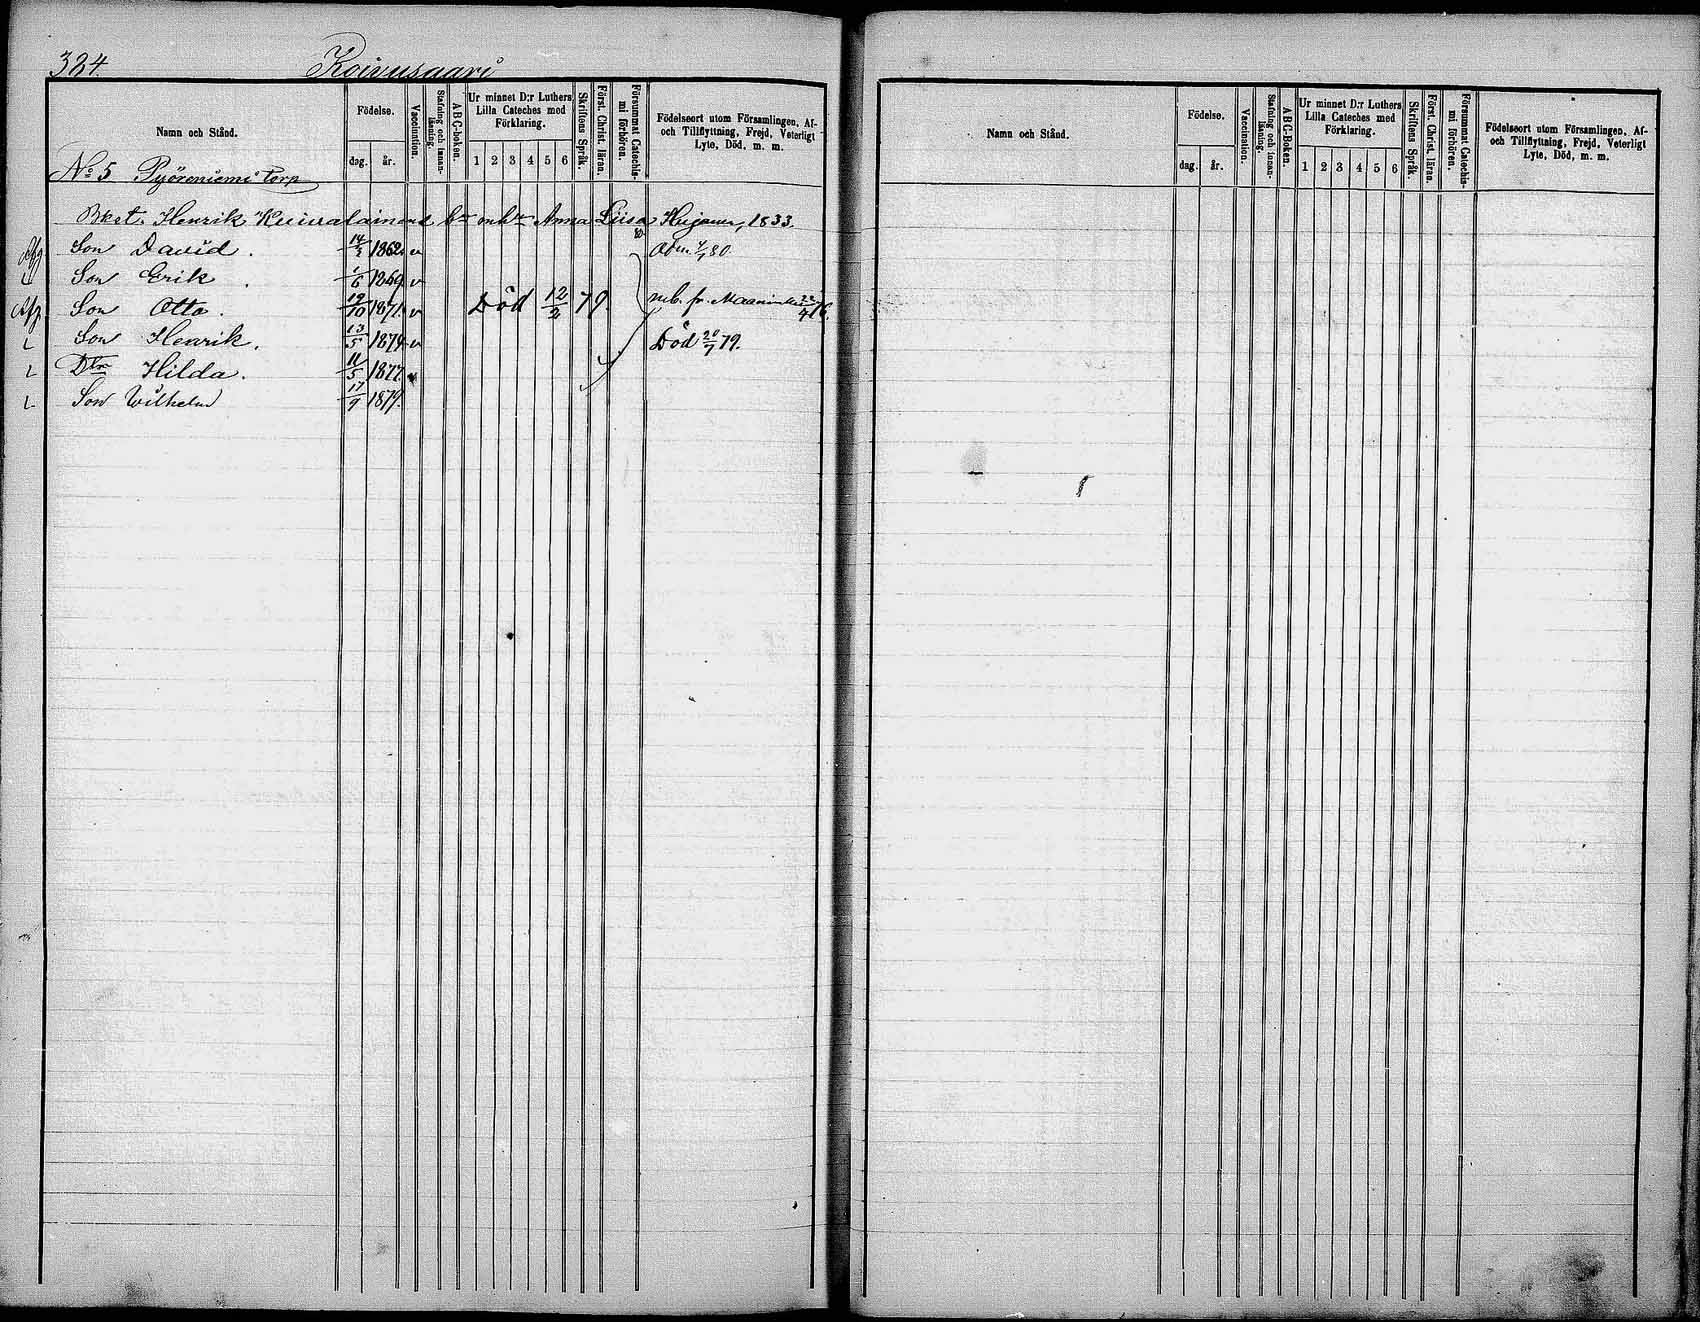 324.
Koivusaari
Namn och Stånd.
Födelse.
dag. år.
Vaccination.
Stafning och innanläsning.
ABC-boken.
Ur minnet D:r Luthers
Lilla Cateches med
Förklaring.
1 2 3 4 5 6
Skriftens Språk.
Först. Christ. läran.
Försummat Catechismi förhören.
Födelseort utom Församlingen, Af-
och Tillflyttning, Frejd, Veterligt
Lyte, Död, m. m.
No 5 Pyöreniemi torp
Henrik Kuivalainens Anna Liisa 1833.
Son David. 14/2 1862. v 80.
Son Erik. 1/6 1869. v
Son Otto. 19/10 1871. v Död 12/2 79. mb. fr. Maaninka 22/4 76.
Son Henrik. 13/5 1874. v Död 20/7 79.
Dtr Hilda. 11/5 1877.
Son Wilhelm 17/9 1879.
Namn och Stånd.
Födelse.
dag. år.
Vaccination.
Stafning och innanläsning.
ABC-Boken.
Ur minnet D:r Luthers
Lilla Cateches med
Förklaring.
1 2 3 4 5 6
Skriftens Språk.
Först. Christ. läran.
Försummat Catechismi förhören.
Födelseort utom Församlingen, Af-
och Tillflyttning, Frejd, Veterligt
Lyte, Död, m. m.